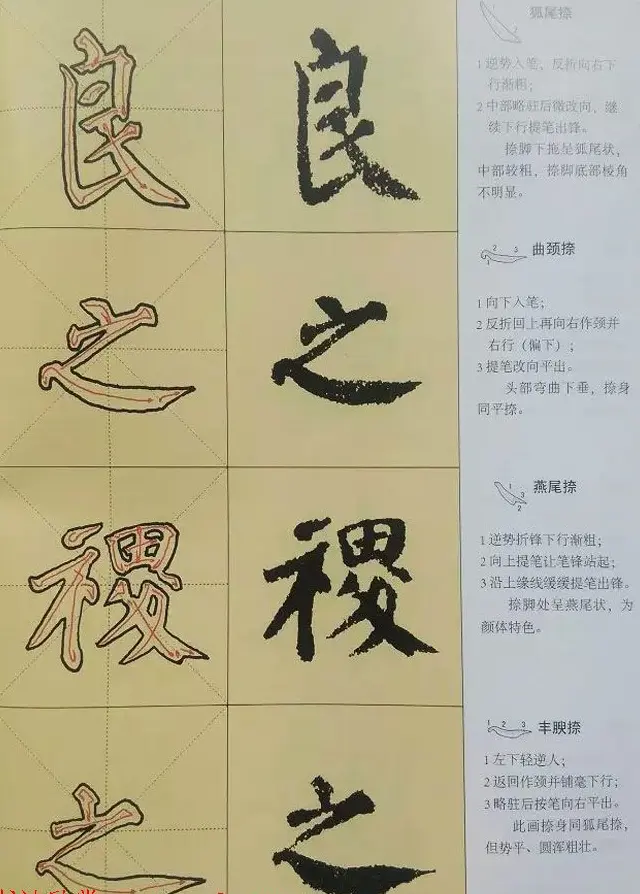 良 良
狐尾捺
1 逆势入笔，反折向右下
行渐粗；
2 中部略驻后微改向，继
续下行提笔出锋。
捺脚下拖呈狐尾状，
中部较粗，捺脚底部棱角
不明显。
之 之
1 2 3
曲颈捺
1 向下入笔；
2 反折回上再向右作颈并
右行（偏下）；
3 提笔改向平出。
头部弯曲下垂，捺身
同平捺。
稷 稷
1 2 3
燕尾捺
1 逆势折锋下行渐粗；
2 向上提笔让笔锋站起；
3 沿上缘线缓缓提笔出锋。
捺脚处呈燕尾状，为
颜体特色。
之 之
1 2 3
丰腴捺
1 左下轻逆入；
2 返回作颈并铺毫下行；
3 略驻后按笔向右平出。
此画捺身同狐尾捺，
但势平、圆浑粗壮。